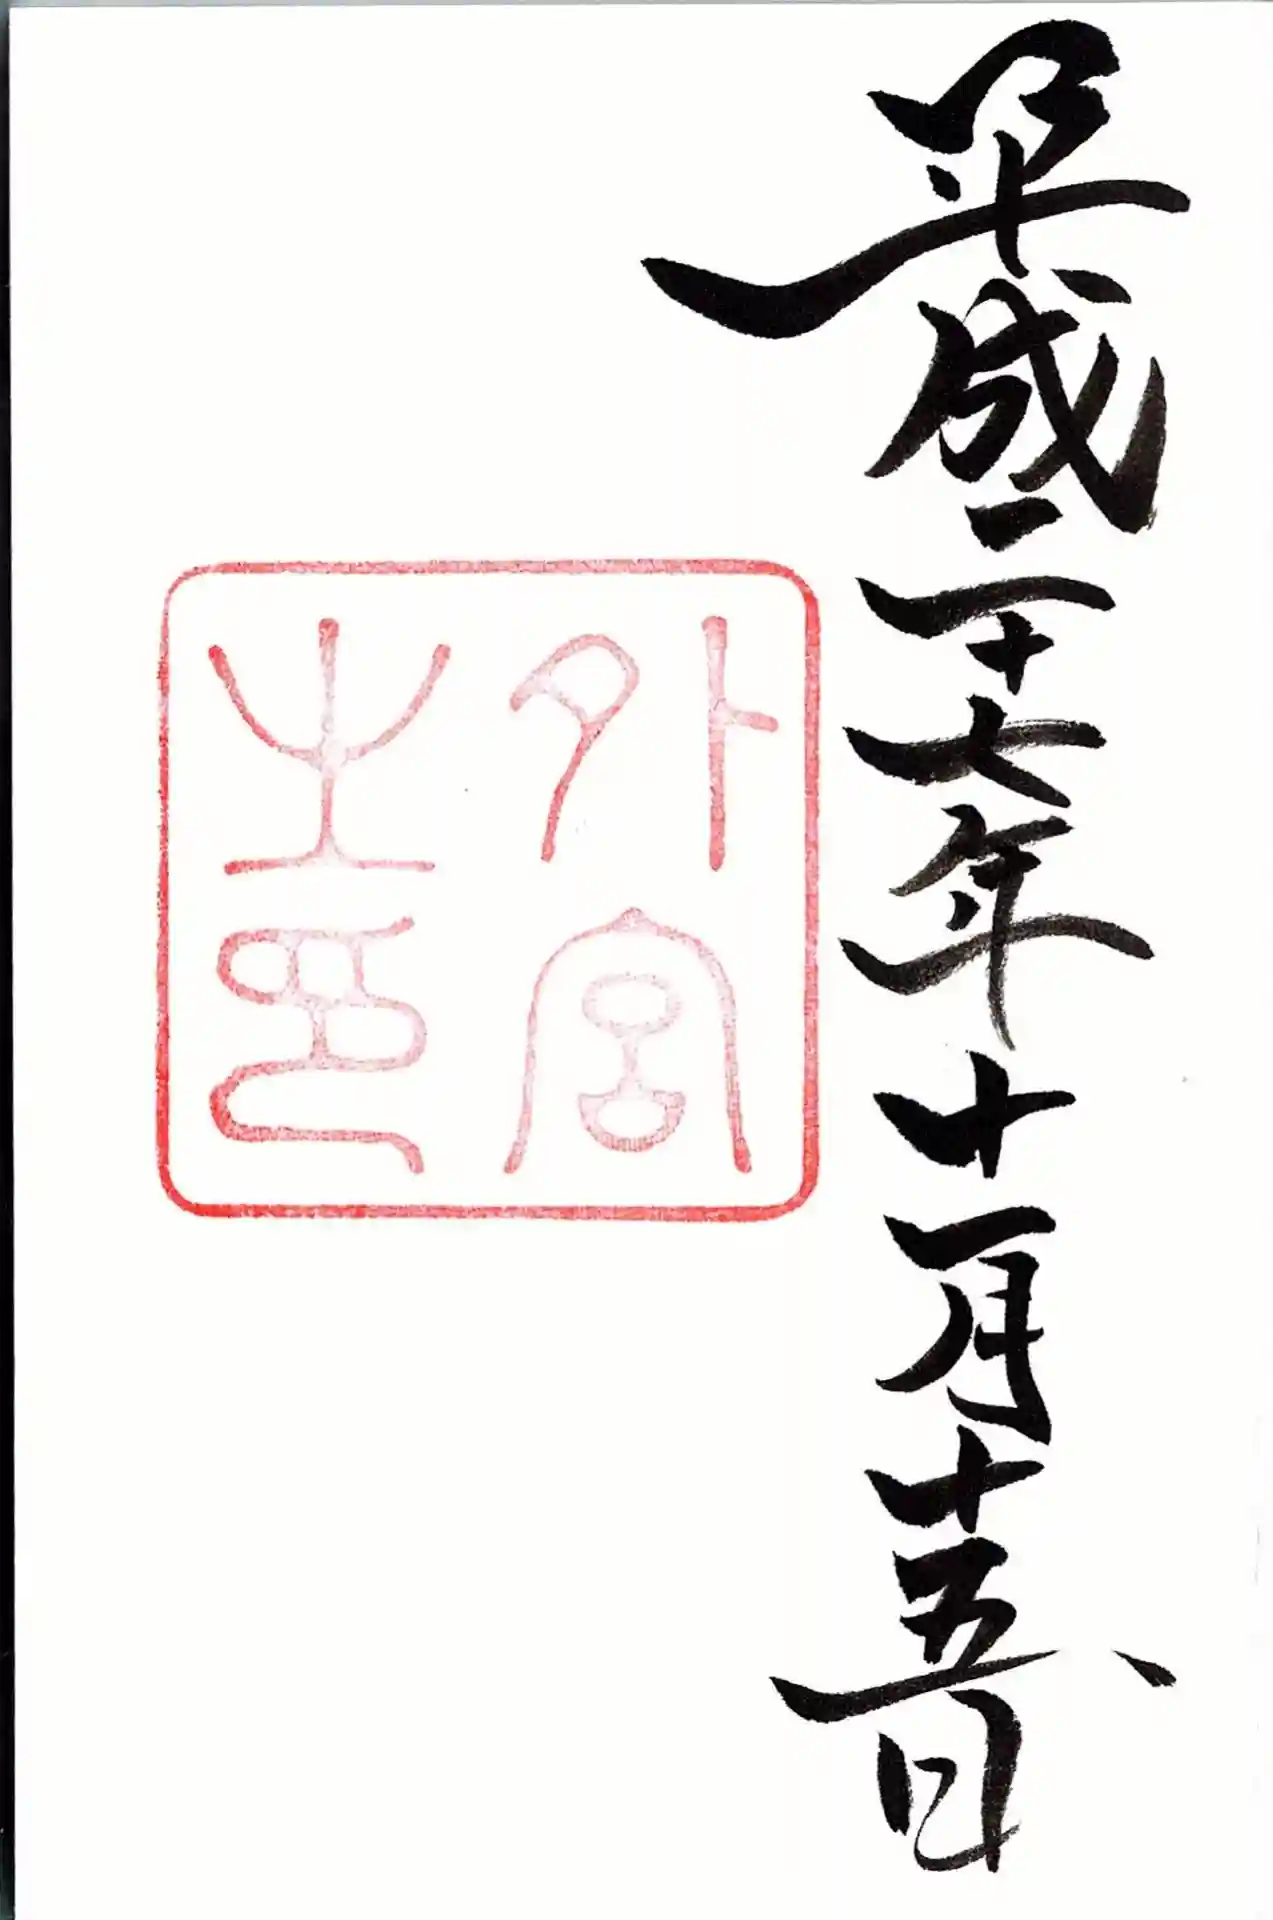 平成二十七年十一月十五日
外宮
之印